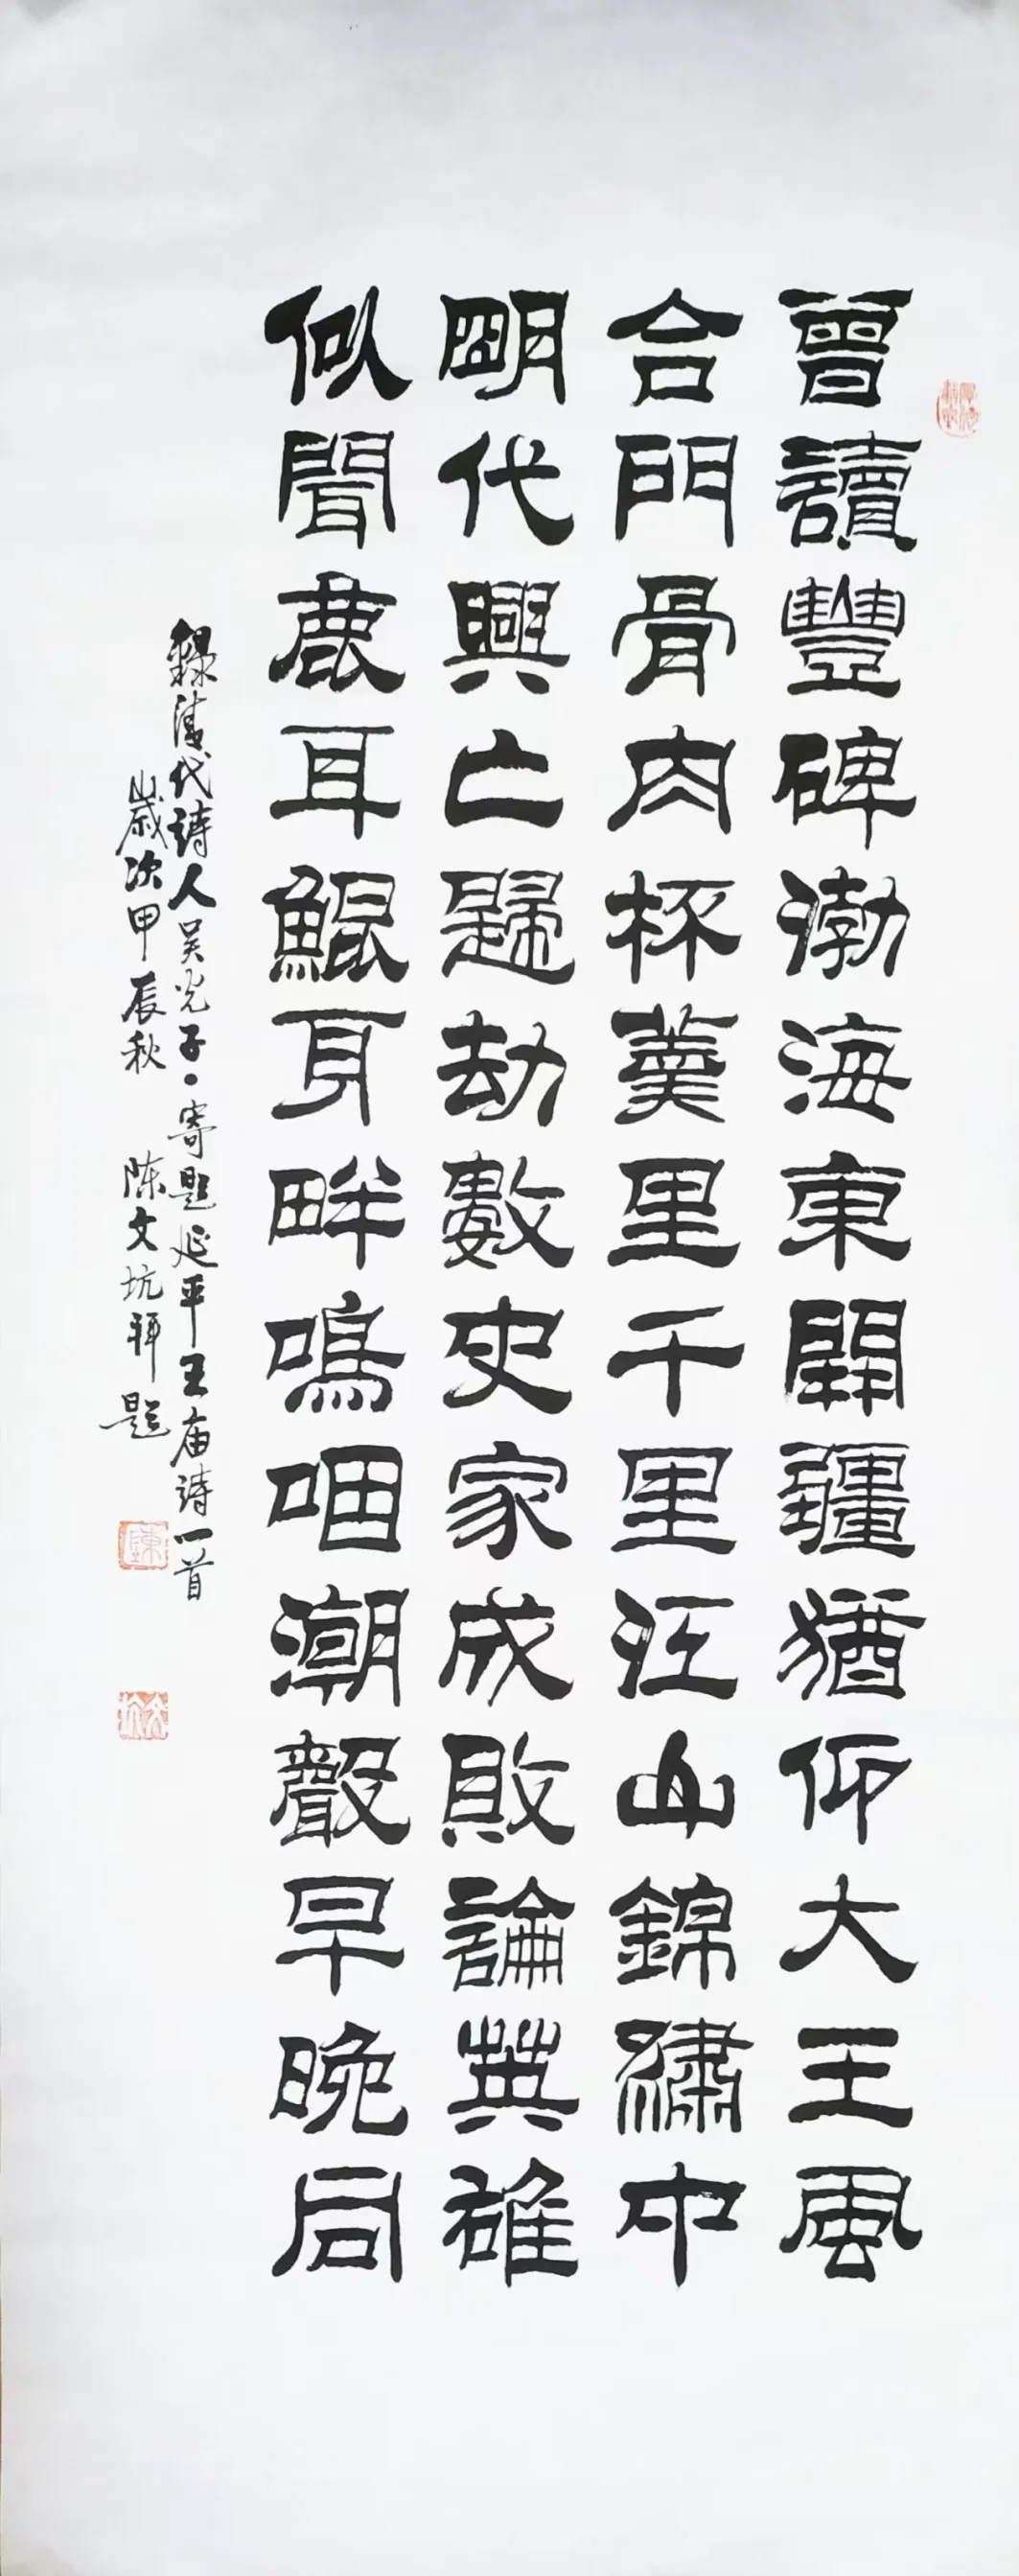 曾讀豐碑渤海東開疆猶仰大王風
台門骨肉杯羹里千里江山錦繡中
明代興亡歸劫數史家成敗論英雄
似聞鹿耳鯤身畔鳴咽潮聲早晚同
錄清代詩人吴光子·寄題延平王庙詩一首
歲次甲辰秋 陈文坑拜題
陳
文坑